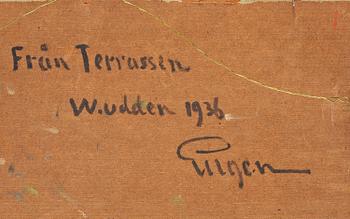 Från Terrassen
W.udden 1936
Eugen